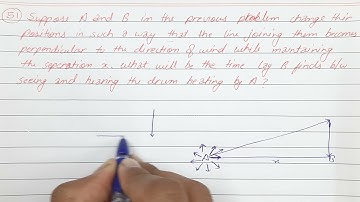 51 Suppose A and B in the previous problem change their
positions in such a way that the line joining them becomes
perpendicular to the direction of wind while maintaining
the seperation x. what will be the time lag B finds b/w
seeing and hearing the drum beating by A?
A
x
B